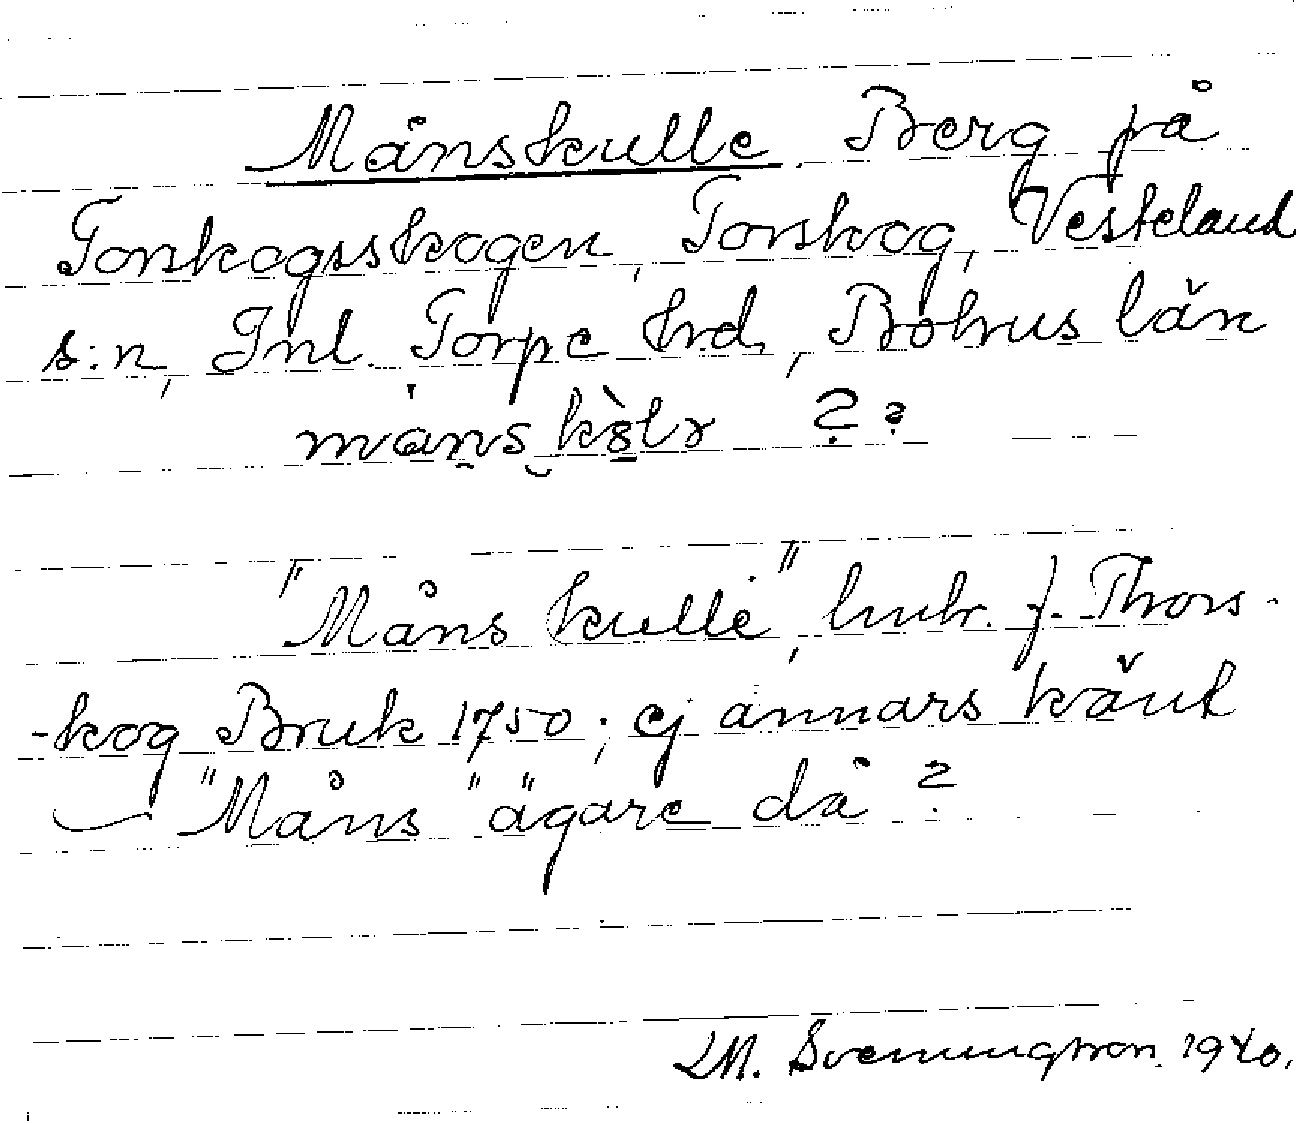 Månskulle Berg på
Torskogsskogen, Torskog, Vesteland
s:n, Inl. Torpe hrd, Bohus län
? ?
"Måns kulle", hmtr. f. Thors-
-kog Bruk 1750; ej annars känt
"Måns" ägare då ?
LM. Svenungsson. 1940.